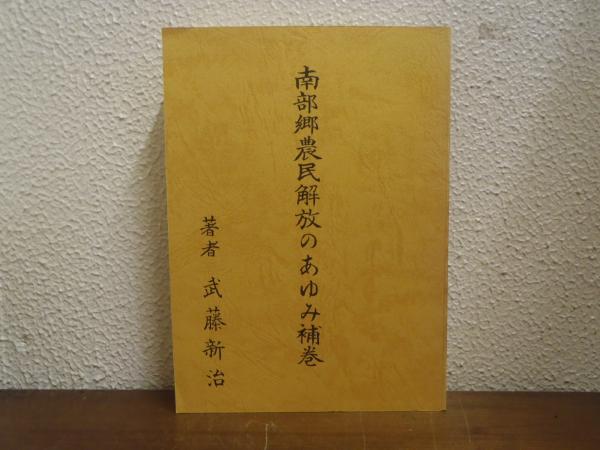 南部郷農民解放のあゆみ補巻
著者 武藤新治